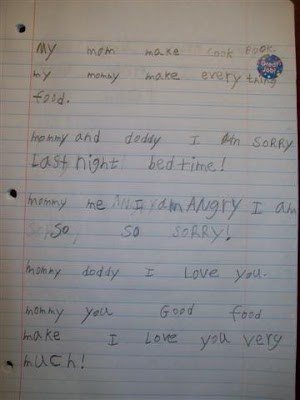 My mom make cook book.
my mommy make every thing
food.
mommy and daddy I am SORRY
Last night bedtime!
mommy me I am Angry I am
so so SORRY!
mommy daddy I love you.
mommy you Good food
make I love you very
much!